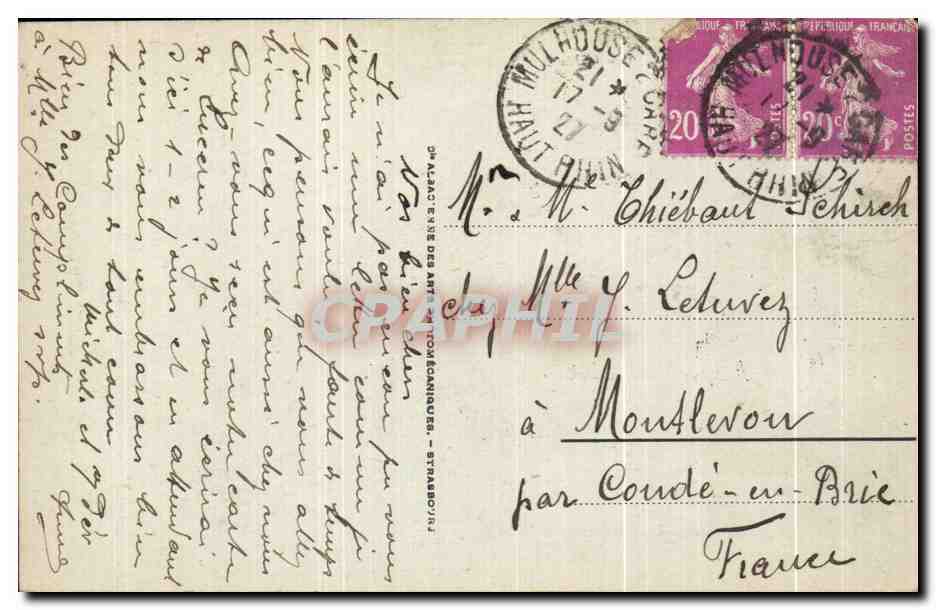 Nos bien chers
Je n'ai pas encore pu vous
écrire une lettre comme je
l'aurais voulu, faute de temps
Nous pensons que vous allez
bien, ce qui est ainsi chez nous
Avez-vous reçu notre carte
de Lucerne ? Je vous écrirai
d'ici 1-2 jours et en attendant
nous vous embrassons bien
tous deux de tout cœur
Michel et
Anne
Bien des Compliments
à Mlle J. Letuvez svp.
Cie ALSACIENNE DES ARTS PHOTOMÉCANIQUES. - STRASBOURG
MULHOUSE GARE
21 *
17 - 9
27
HAUT RHIN
RÉPUBLIQUE FRANÇAISE
20 c
POSTES
RÉPUBLIQUE FRANÇAISE
20 c
POSTES
MULHOUSE GARE
21 *
HAUT RHIN
Mr & Me Thiébaut Schirch
chez Mlle J. Letuvez
à Montlevon
par Condé-en-Brie
France
CPAPHIL